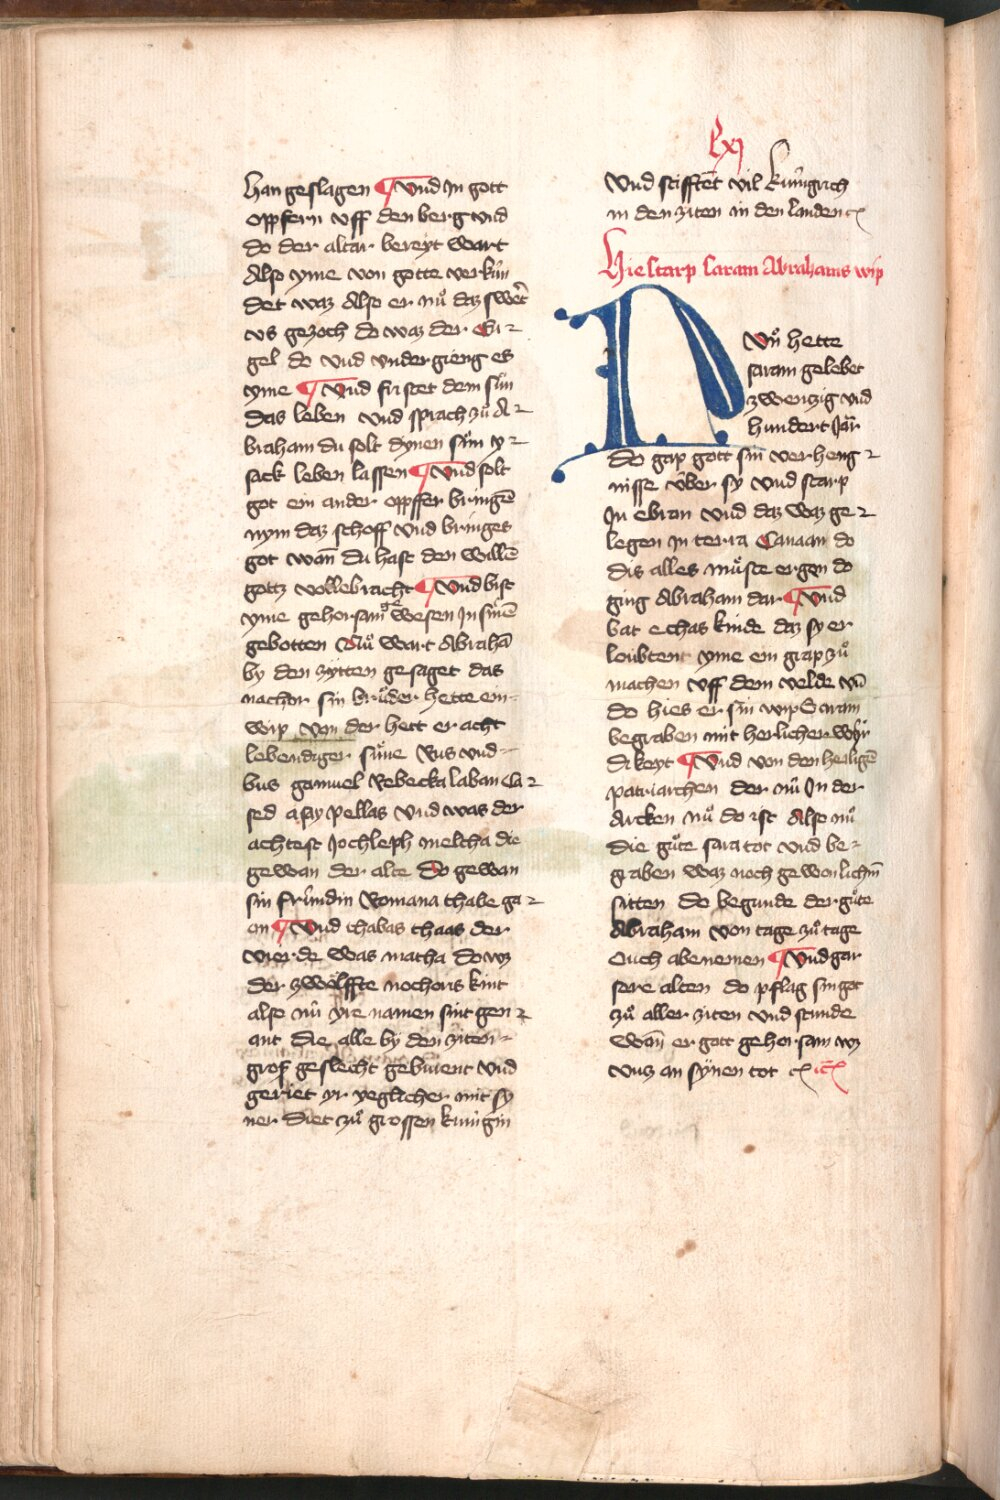 Lxj
han geslagen ¶ Vnd In gott
oppfern vff den berg vnd
do der altar bereyt wart
Also yme von gotte verkün
det waz Also er nů daz swẽt
vs gezoch do waz der En
gel do vnd vndergieng es
yme ¶ Vnd fristet dem sün
das leben vnd sprach zů A
braham du solt dynen sün ẏ
sack leben lassen ¶ Vnd solt
got ein ander oppffer bringẽ
nym daz schoff vnd bringes
got wañ du hast den willẽ
gottz vollebracht ¶ Vnd bist
yme gehorsam gewesen In sinẽ
gebotten Nů wart Abrahã
by den zytten gesaget das
nachor sin brůder hette ein
wip von der hett er acht
lebendiger süne Vus vnd
bus gamuel Rebecka laban Ca
sed asay pellas vnd was der
achtest Jochleph melcha die
gewan der alte Do gewan
sin fründin Romana thabe ga
on ¶ Vnd thabas thaas der
vierde was matha do wz
der zwölffte nochoris kint
also nü yre namen sint gen
ant die alle by den ziten
groß geslecht gebürent vnd
geriet yr yeglicher mit sy
ner diet zů grossen künigin
Vnd stifftẽt vil künigrich
in den ziten in den landen
Hie starp saram Abrahams wip
Nů hette
saram gelebet
zwenzig vnd
hundert Jar
do gap gott sin verheng
nisse über sy vnd starp
In ebran vnd daz waz ge
legen In terra Canaan do
dis alles můste ergon do
ging Abraham dar ¶ Vnd
bat echas kinde daz sy er
loubtent yme ein grap zů
machen vff dem velde vñ
do hies er sin wip Saram
begraben mit herlicher wir
dikeyt ¶ Vnd von den heiligẽ
patriarchen der nü In der
Arcken nů do ist Also nů
die gůte sara tot vnd be
graben waz noch gewonlichm̃
sitten do begunde der gůte
Abraham von tage zů tage
Ouch abenemen ¶ Vnd gar
sere alten do pflag sin got
zů aller ziten vnd stunde
wañ er gott gehorsam wz
vntz an synen tot